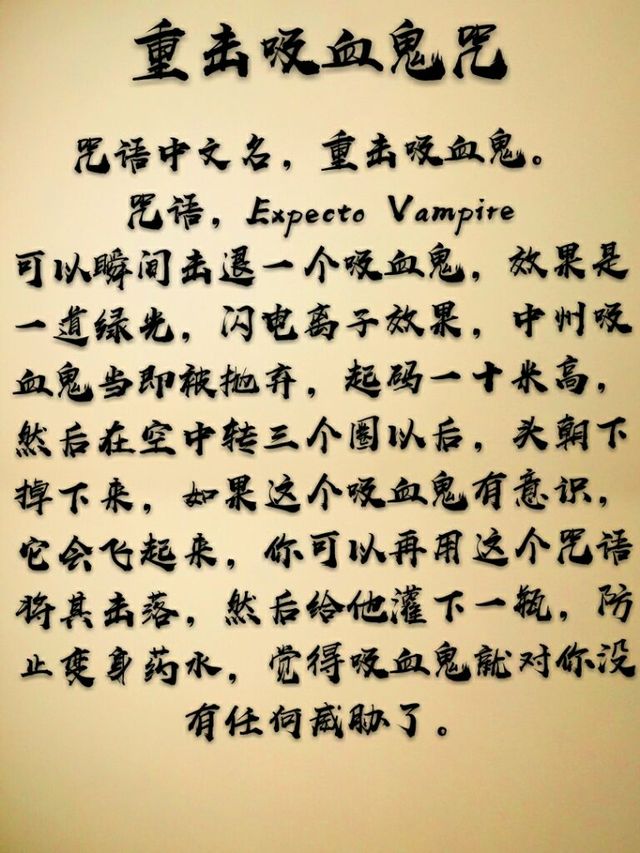 重击吸血鬼咒
咒语中文名，重击吸血鬼。
咒语，Expecto Vampire
可以瞬间击退一个吸血鬼，效果是
一道绿光，闪电离子效果，中州吸
血鬼当即被抛弃，起码一十米高，
然后在空中转三个圈以后，头朝下
掉下来，如果这个吸血鬼有意识，
它会飞起来，你可以再用这个咒语
将其击落，然后给他灌下一瓶，防
止变身药水，觉得吸血鬼就对你没
有任何威胁了。